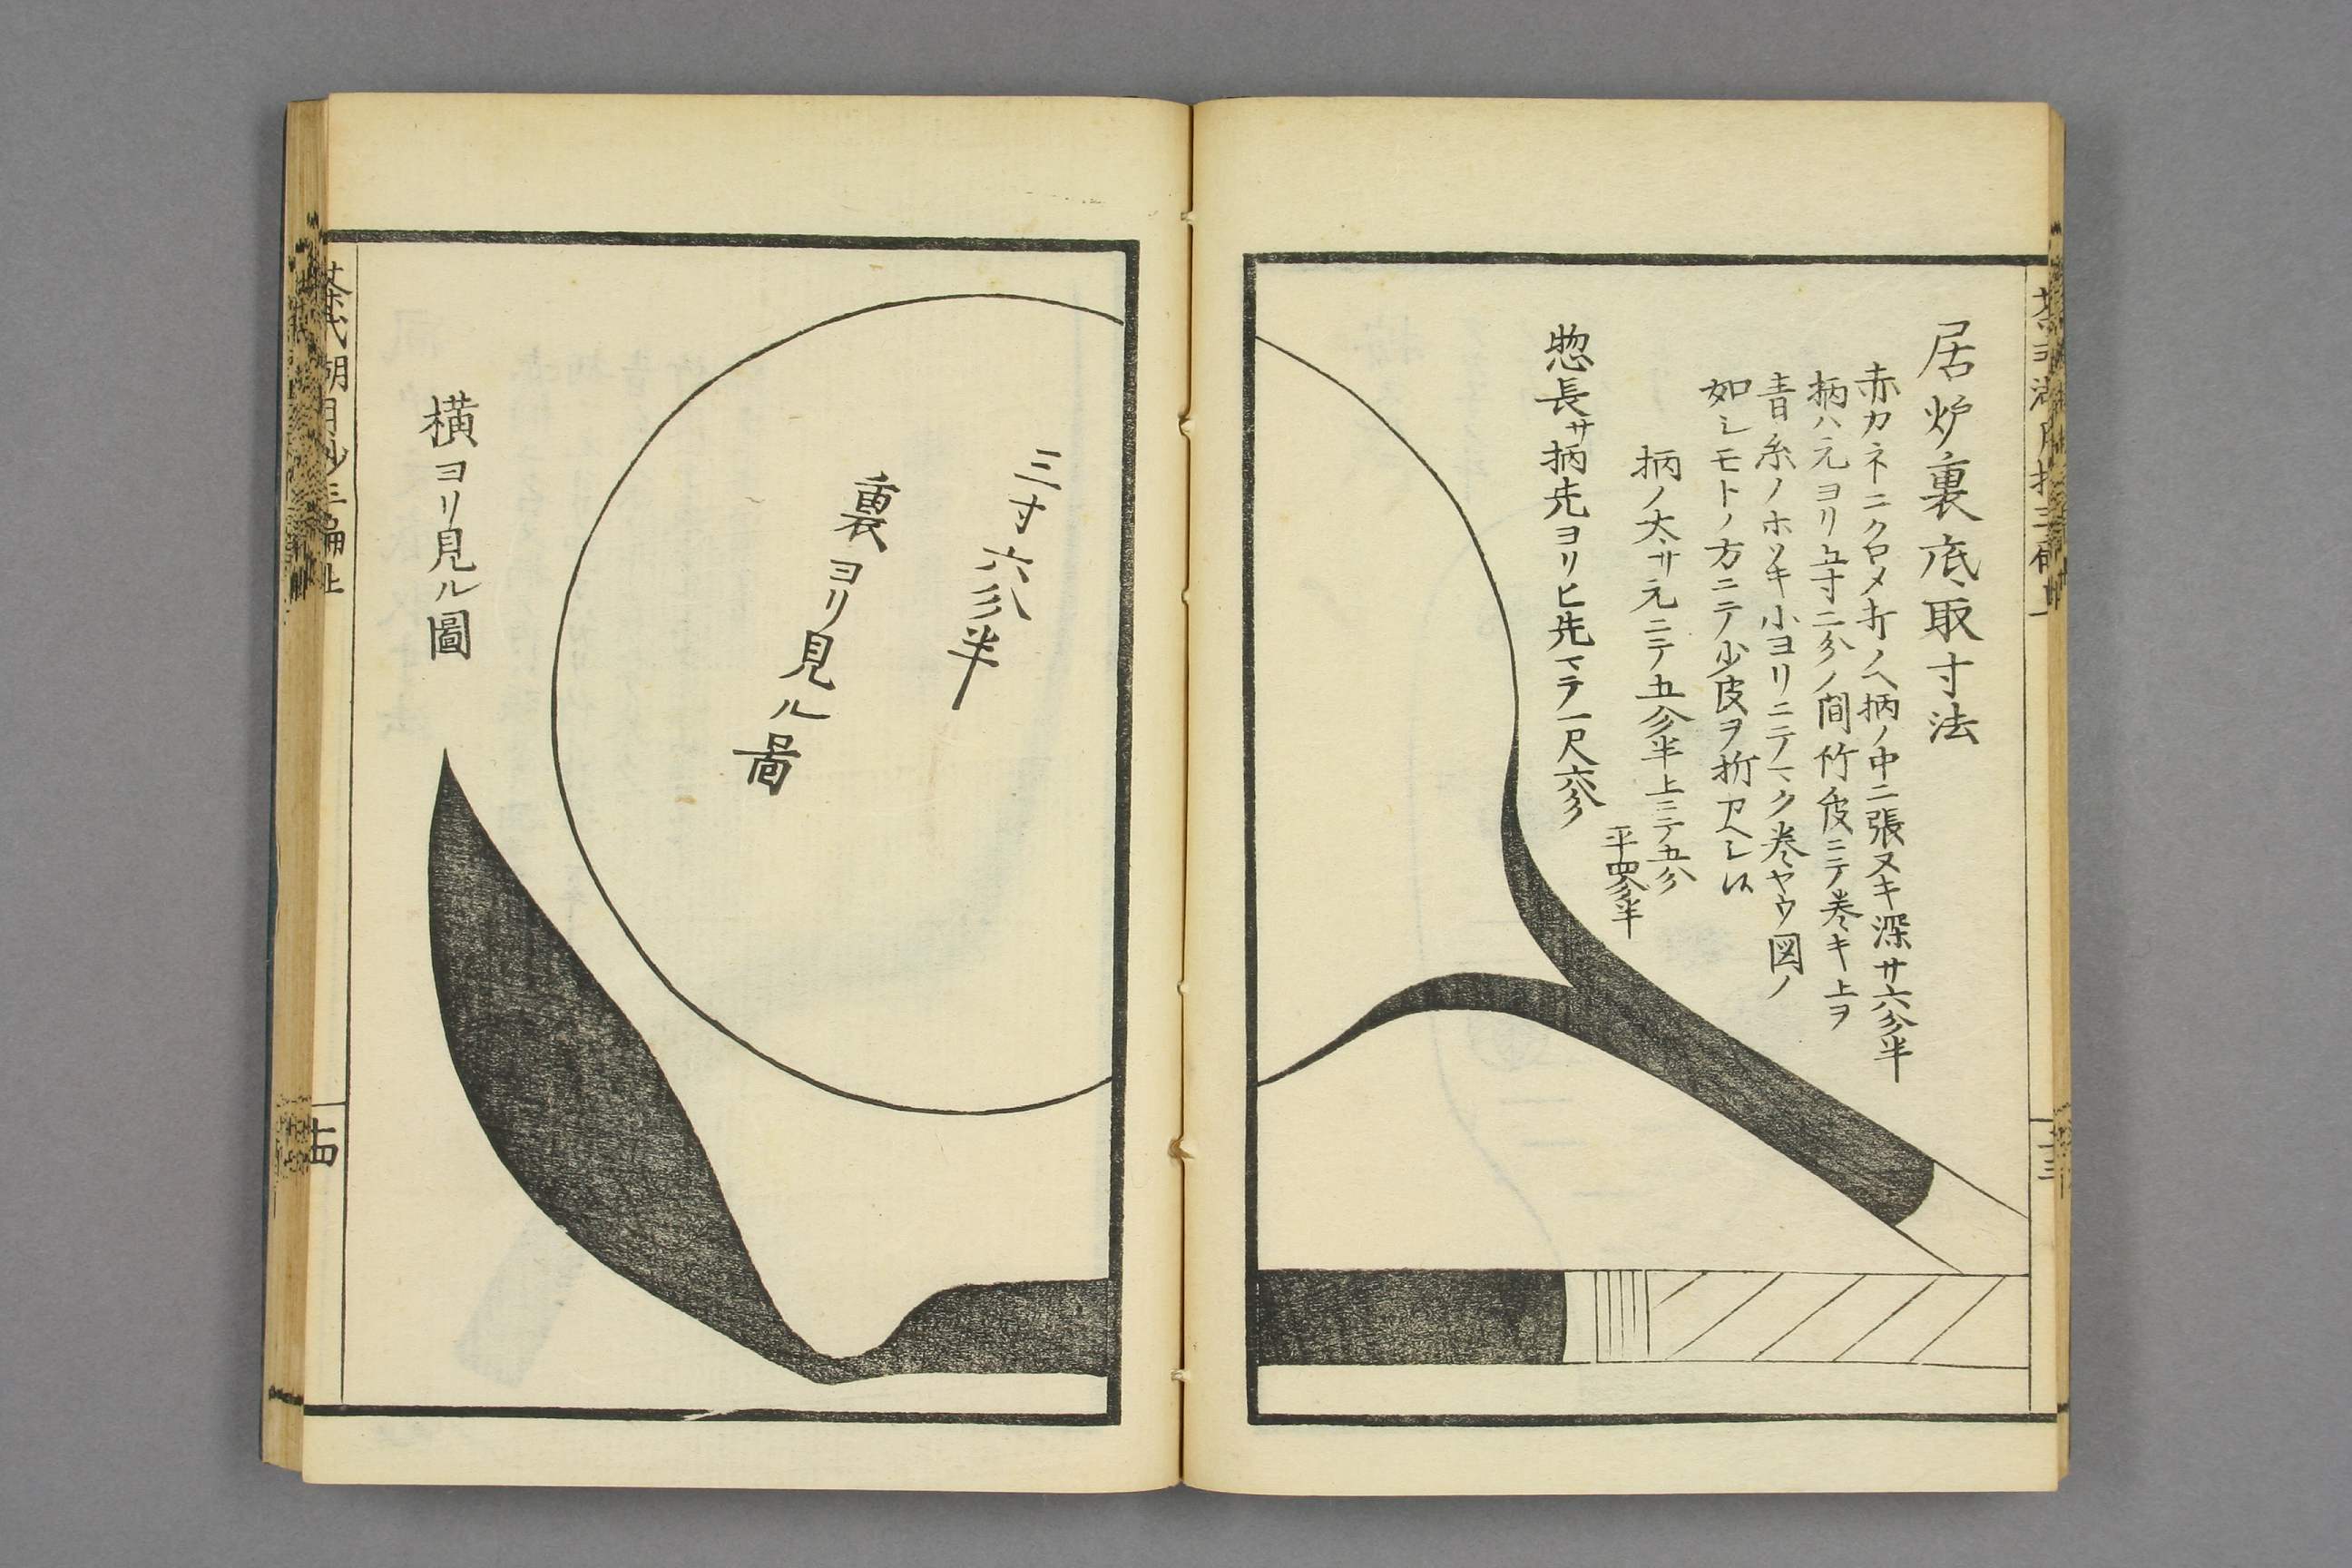 居炉裏底取寸法
赤カネニクロメ打ノヘ柄ノ中ニ張ヌキ深サ六分半
柄ハ元ヨリ五寸二分ノ間竹ノ皮ニテ巻キ上ヲ
青糸ノホソキ小ヨリニテマク巻ヤウ図ノ
如シモトノ方ニテ少皮ヲ折
柄ノ太サ元ニテ五分半上ニテ五分
平四分半
惣長サ柄先ヨリヒ先マテ一尺六分
三寸六分半
裏ヨリ見ル啚
横ヨリ見ル圖
茶式湖月抄三編上
十四